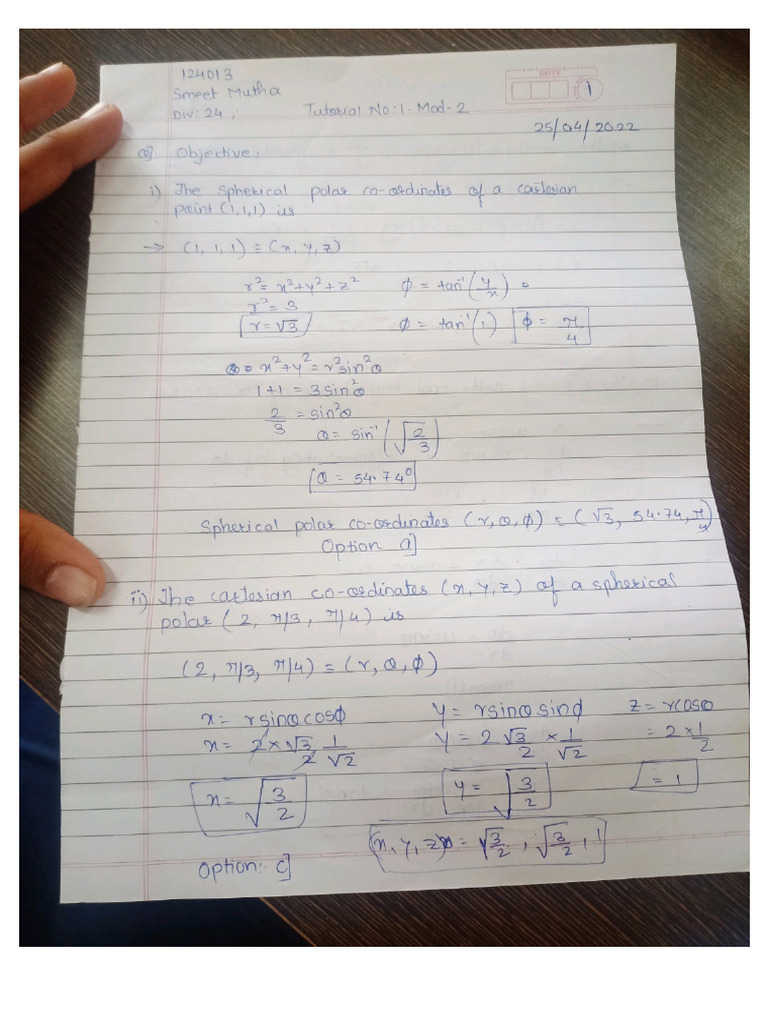 124013
Smeet Mutha
DATE
1
Div: 24
Tutorial No: 1 - Mod - 2
25/04/2022
Q] Objective:
i) The spherical polar co-ordinates of a cartesian
point (1,1,1) is
→ (1, 1, 1) = (x, y, z)
r² = x² + y² + z²
ϕ = tan⁻¹(y/x)
r² = 3
r = √3
ϕ = tan⁻¹(1) ϕ = π/4
x² + y² = r² sin² θ
1+1 = 3 sin² θ
2/3 = sin² θ
θ = sin⁻¹(√(2/3))
θ = 54.74°
Spherical polar co-ordinates (r, θ, ϕ) = (√3, 54.74, π/4)
Option a]
ii) The cartesian co-ordinates (x, y, z) of a spherical
polar (2, π/3, π/4) is
(2, π/3, π/4) = (r, θ, ϕ)
x = r sinθ cosϕ y = r sinθ sinϕ z = r cosθ
x = 2 × √3/2 1/√2 y = 2 √3/2 × 1/√2 = 2 × 1/2
x = √(3/2) y = √(3/2) = 1
(x, y, z) = √(3/2), √(3/2), 1
Option: c]